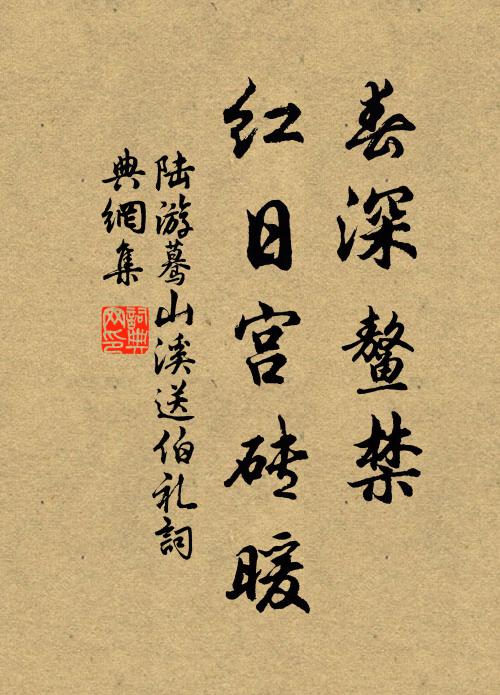 春深鳌禁
红日宫砖暖
陆游蓦山溪送伯礼詞
典網集
詞典
网印